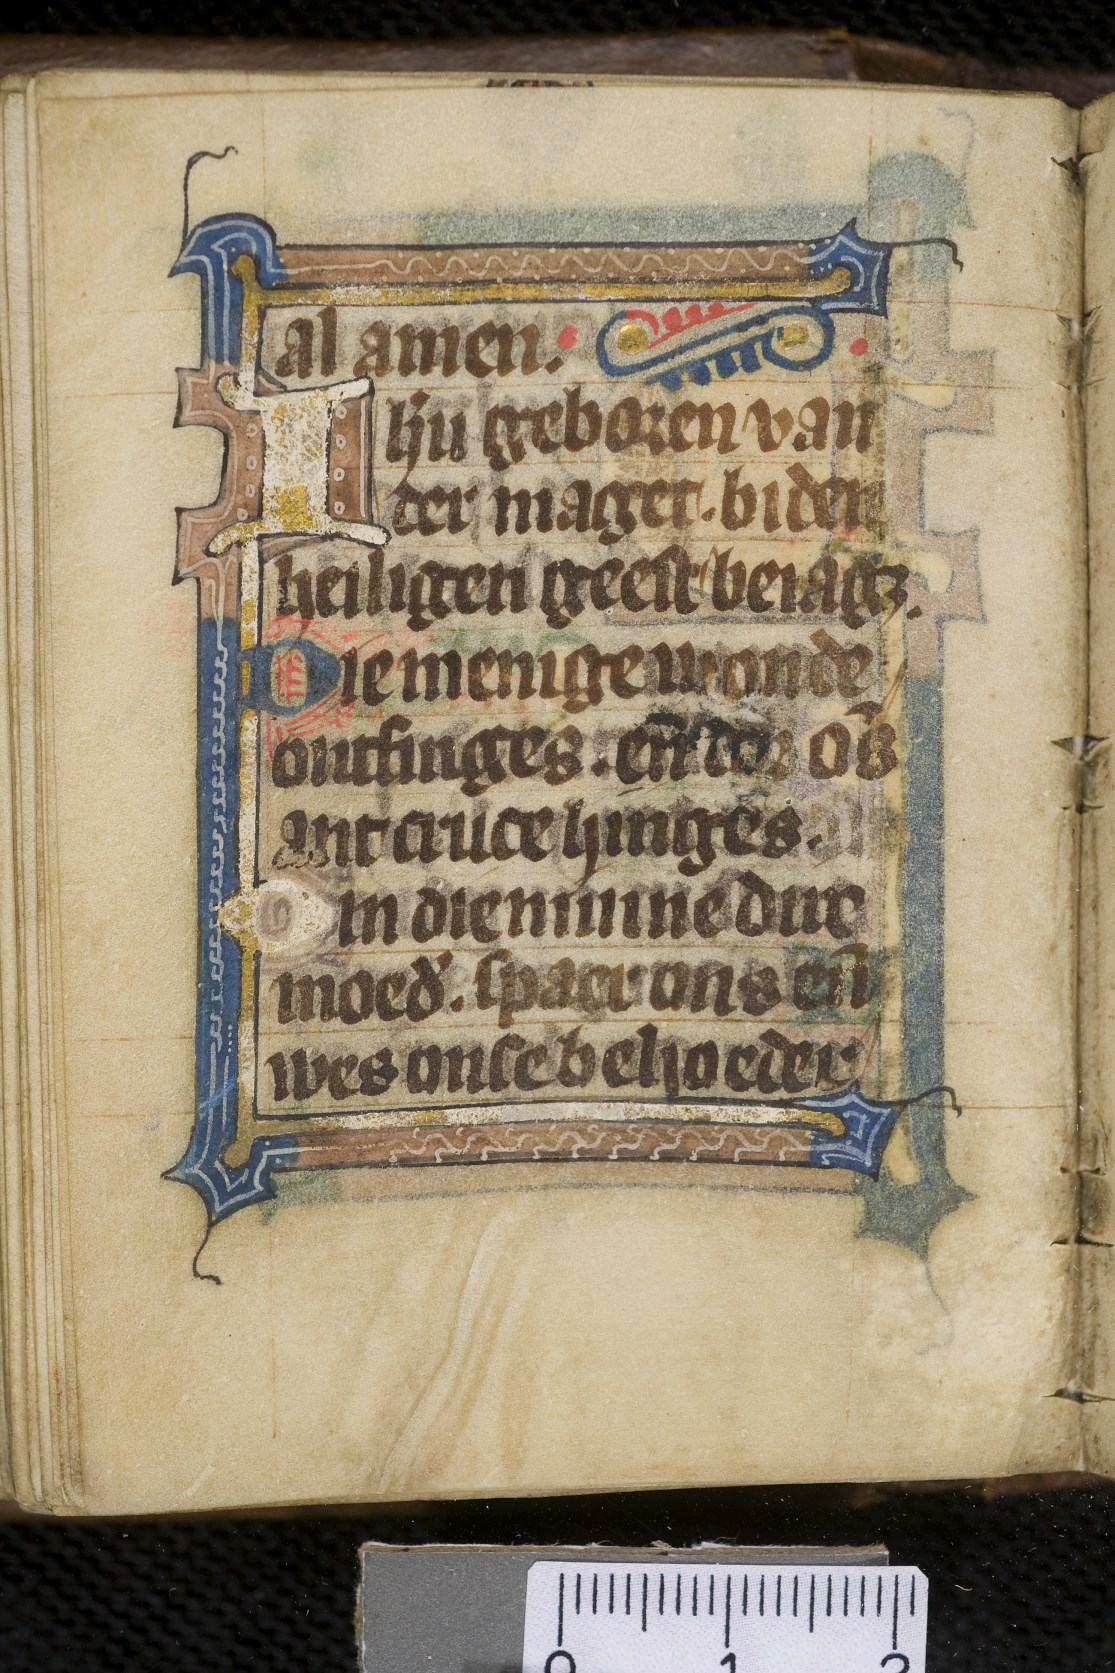 al amen.
Ihu geboren van
der maget. bi den
heiligen geest beiagt.
Die menige wonde
ontfinges. en̄ dor ōs
ant cruce hinges.
in die minne dure
moed̛. spaer ons en̄
wes onse behoeder
0 1 2